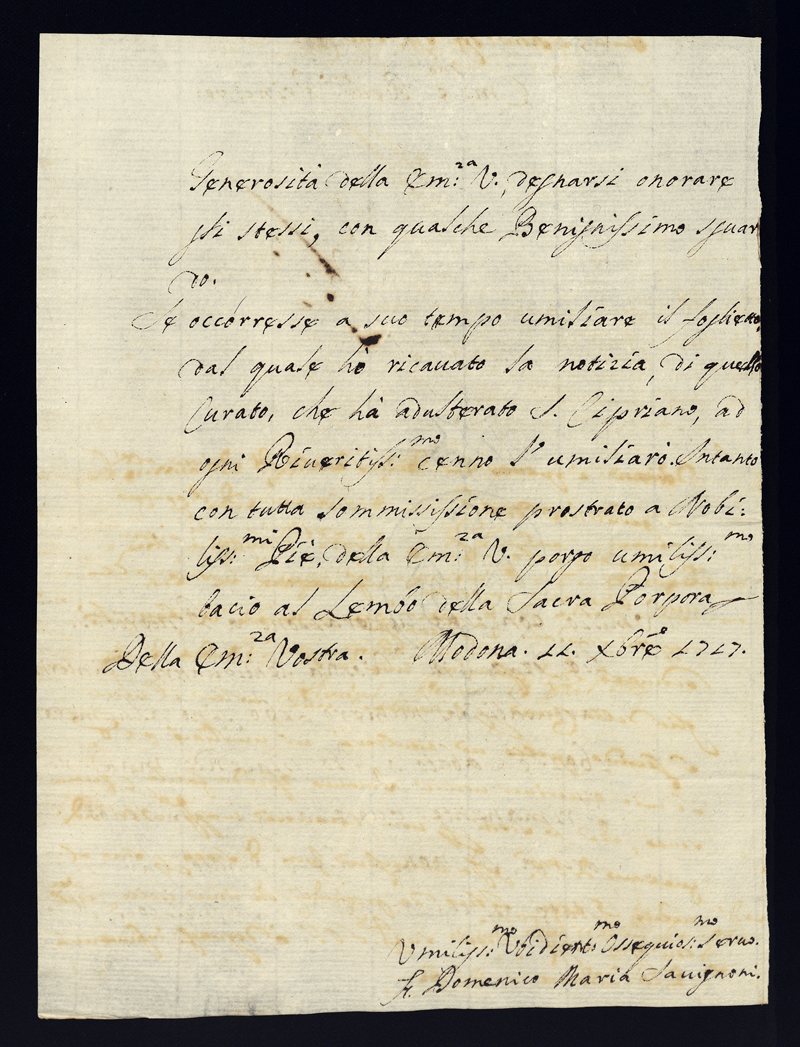 Generosità della Em:za V. degnarsi onorare
gli stessi, con qualche Benignissimo sguar
do.
Se occórresse a suo tempo umiliare il foglietto,
dal quale hò ricavato la notizia, di quello
Curato, che hà adulterato S. Cipriano, ad
ogni Riveritiss:mo cenno l'umiliarò. Intanto
con tutta sommissione prostrato a Nobi:
liss:mi Piè, della Em:za V. porgo umiliss:mo
bacio al Lembo della Sacra Porpora
Della Em:za Vostra. Modona. 11. Xbre 1717.
Umiliss:mo Vbidient:mo Ossequios:mo Servo.
F. Domenico Maria Savignoni.